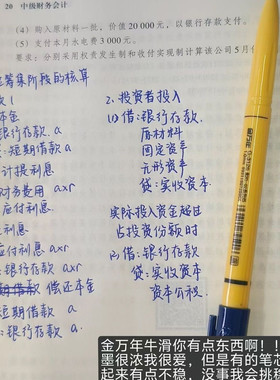 20 中级财务会计
(4) 购入原材料一批，价值20 000元，以银行存款支付。
(5) 支付本月水电费3 000元。
要求：分别采用权责发生制和收付实现制计算该公司5月
筹集阶段的核算
本金
银行存款 a
短期借款 a
计提利息
财务费用 axr
应付利息
利息
应付利息 axr
银行存款 axr
偿还本金
短期借款 a
银行存款 a
2. 投资者投入
(1) 借：银行存款
原材料
固定资产
无形资产
贷：实收资本
实际投入资金超过
占投资份额时
(2) 借：银行存款
贷：实收资本
资本公积
金万年牛滑你有点东西啊！！
墨很浓我很爱，但是有的笔芯
起来有点不稳，没事我会挑